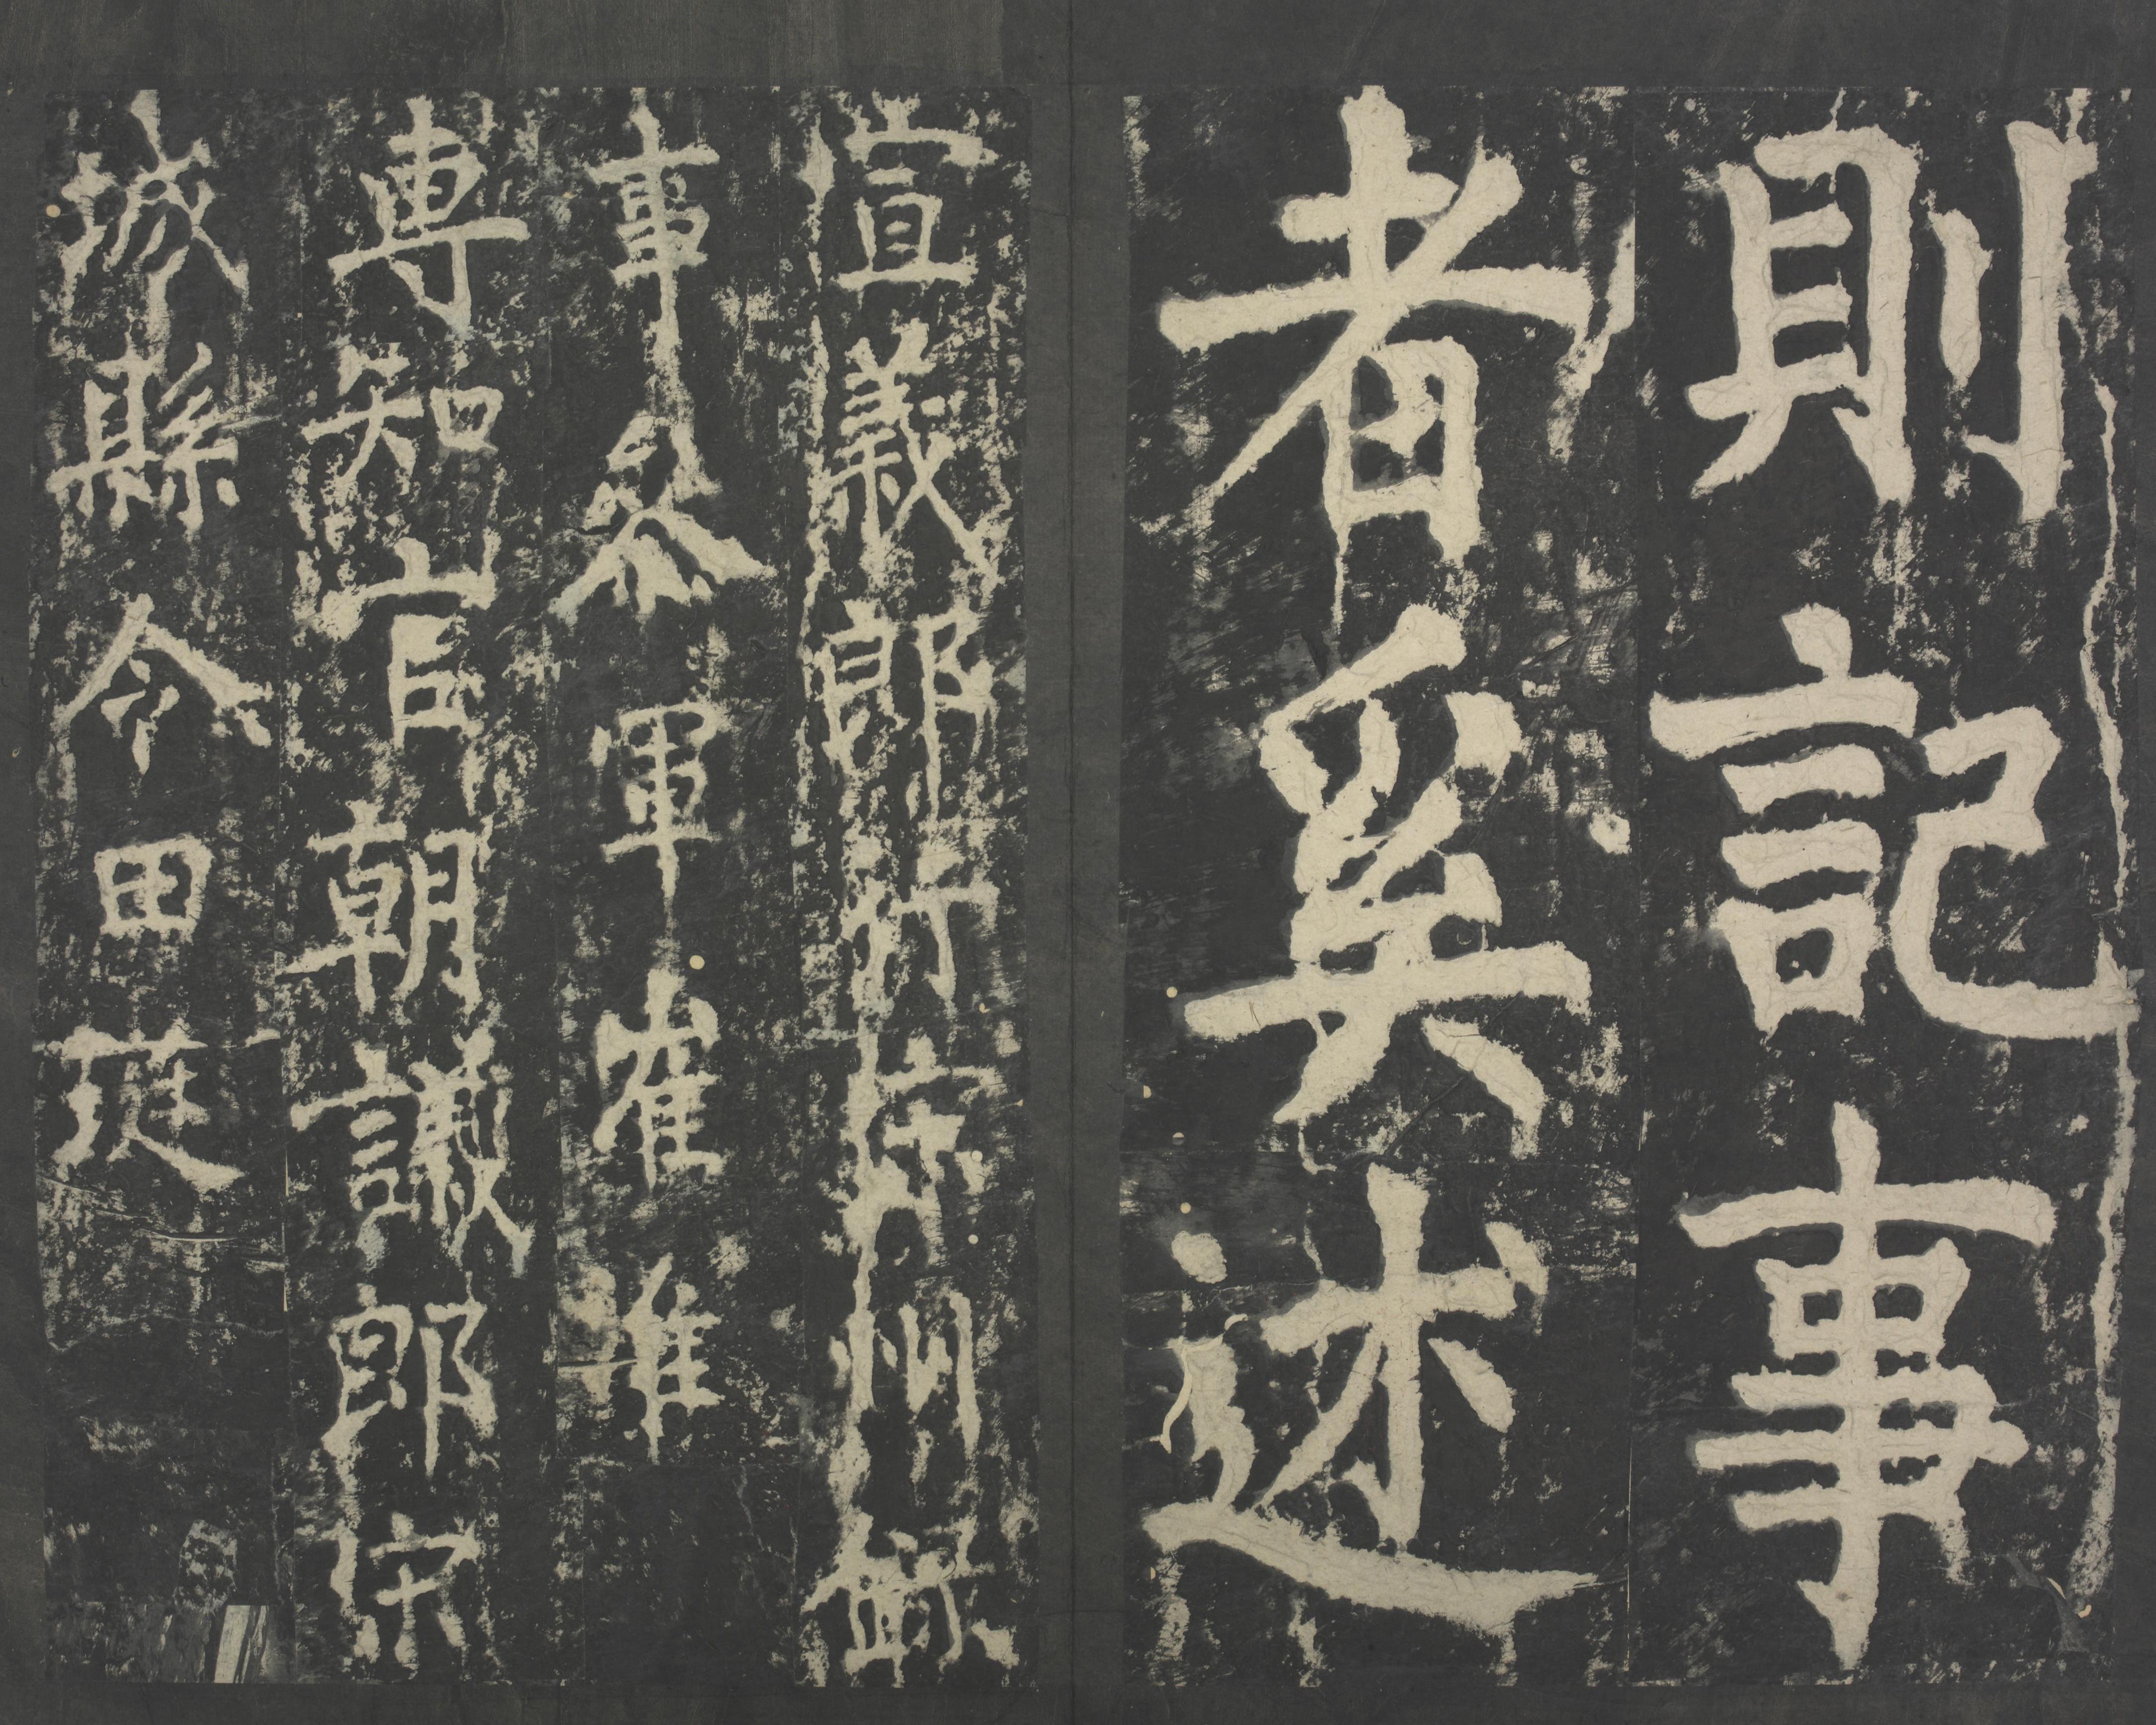 則記事
者奚述
宣義郎行宋州錄
事叅軍崔
專知官朝議郎宋
城縣令田